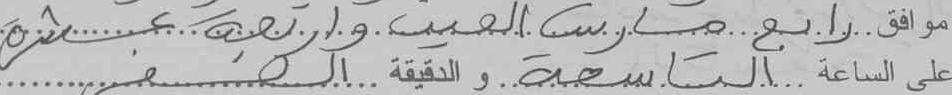 موافق رابع مارس ألفين وأربعة عشرة
على الساعة التاسعة والدقيقة الصفر